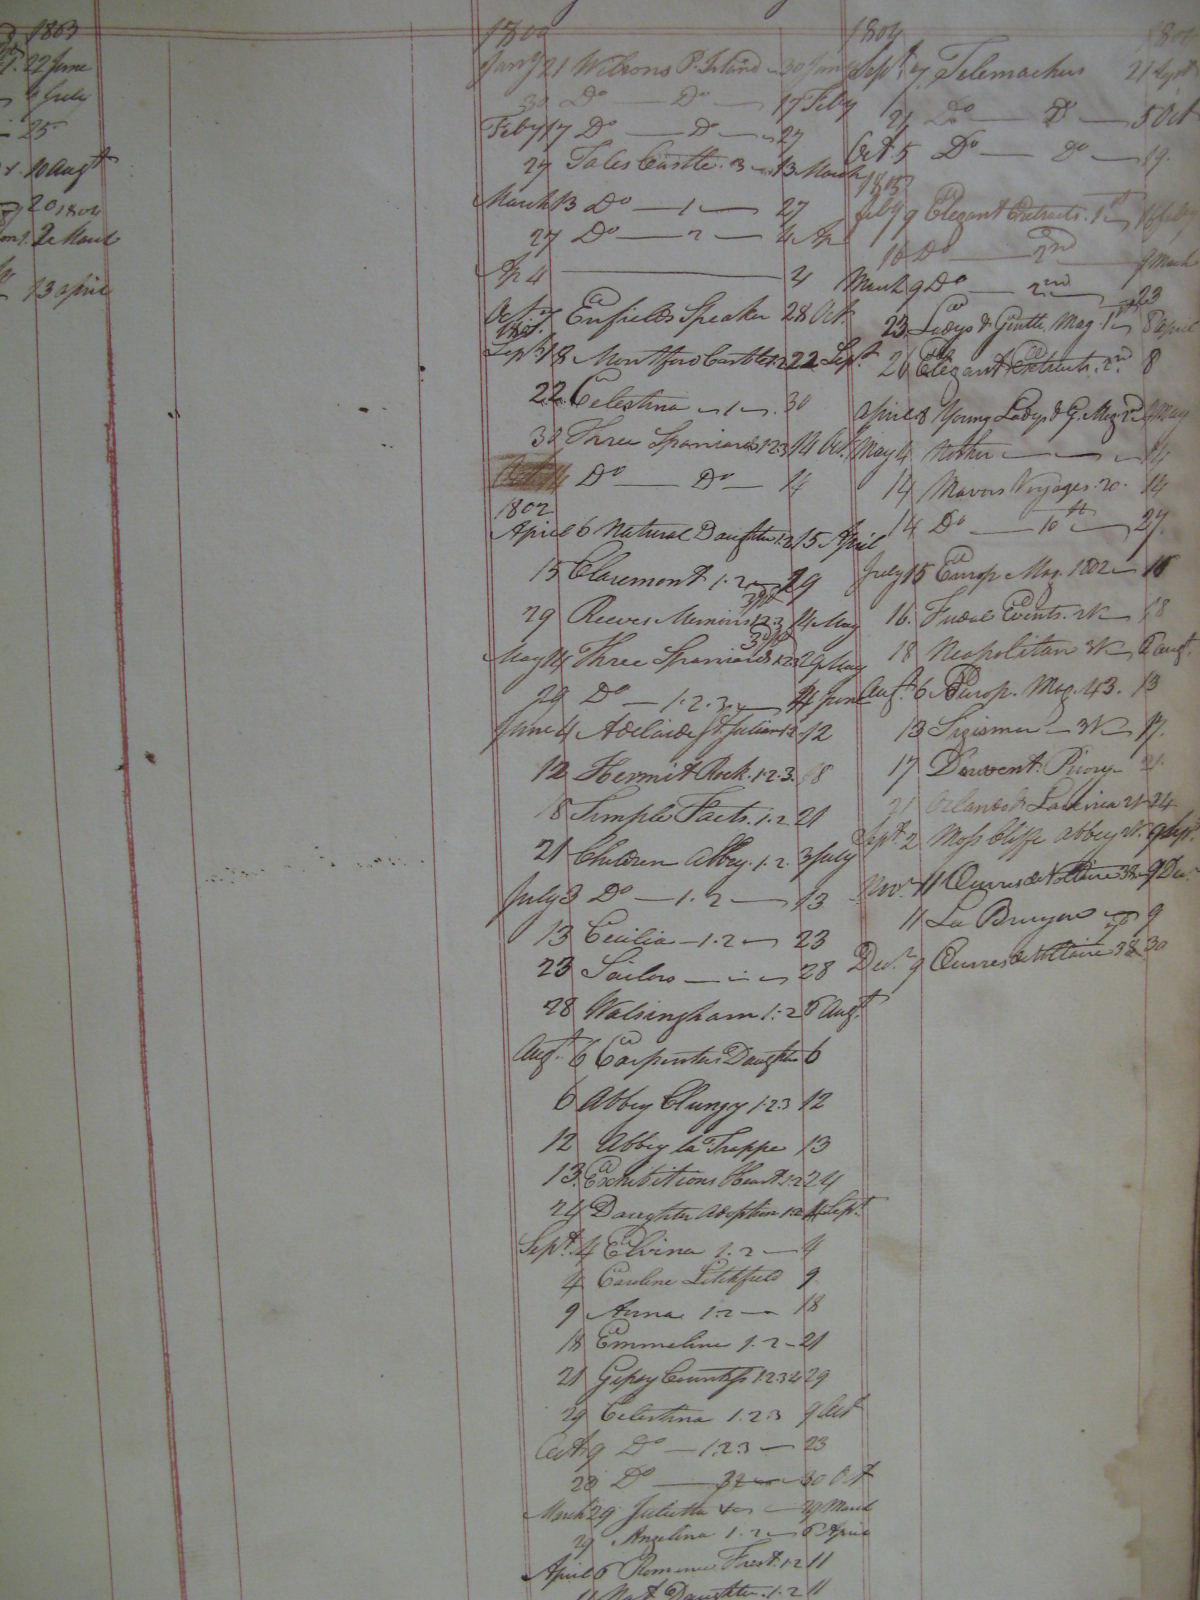 1803
22 June
4 July
25
10 Augt
20 1804
2 March
13 april
1800
Jany 21 Wilsons P. Island 30 Jany
30 Do — Do — 17 Feby
Feby 17 Do — Do — 27
27 Tales Castle. 3 — 13 March
March 13 Do — 1 — 27
27 Do — 2 — 4 Ap
Ap 4 — 4
Oct. 7 Enfields Speaker 28 Oct
1801.
Sept. 18 Montford Castle 1.2 22 Sept.
22 Celestina — 1 — 30
30 Three Spaniards 1 2 3 14 Oct.
Oct 14 Do — Do — 14
1802
April 6 Natural Daughter 1.2 15 April
15 Claremont 1.2 — 29
29 Reeves Memoirs 1.2.3 14 May
May 14 Three Spaniards 1.2.3 29 May
29 Do — 1.2.3 — 4 June
June 4 Adelaide St. Julian 1.2 12
12 Hermit Rock. 1.2.3. 18
18 Simple Facts. 1.2 21
21 Children Abbey. 1.2. 3 July
July 3 Do — 1.2 — 13
13 Cecilia — 1.2 — 23
23 Sailors — 28
28 Walsingham 1.2 6 Augt.
Augt. 6 Carpenters Daughter 6
6 Abbey Clungy 1.2.3 12
12 Abbey la Trappe 13
13. Exhibitions Heart. 1.2 24
24 Daughter Adoption 1.2 4 Sept.
Sept. 4 Elvina 1.2 — 4
4 Caroline Litchfield 9
9 Anna 1.2 — 18
18 Emmeline 1.2 — 21
21 Gipsy Countess 1.2.3.4 29
29 Celestina 1.2.3 9 Oct
Oct 9 Do — 1.2.3 — 23
23 Do — 30 Oct
March 29 Julietta — 29 March
29 Angelina 1.2 — 6 April
April 6 Romance Forest. 1.2 11
11 Nat Daughter. 1.2 11
1804
Sept. 7 Telemachus 21 Sept
21 Do — Do — 5 Oct
Oct. 5 Do — Do — 19.
1805
Feby 9 Elegant Extracts. 1st 16 Feby
16 Do — 2nd — 9 March
March 9 Do — 2nd — 23
23 Ladys & Gentle. Mag. 1st 8 april
26 Elegant Extracts. 2nd 8
April 8 Young Ladys & G. Mag 2d 4 May
May 4 Mother — 14
14 Mavors Voyages. 20. 14
14 Do — 10th — 27.
July 15 Europ Mag. 1802 — 16
16. Fudal Events. 2V — 18
18 Neapolitan 3V — 6 Augt.
Augt. 6 Europ. Mag. 43. 13
13 Sigismar — 3V — 17.
17 Derwent Priory — 21.
21 Orlando & Lavinia 2V 24
Sept. 2 Moss Cliffe Abbey 2V. 9 Sept.
Novr 11 Œuvres de Voltaire 38 9 Decr
11 La Bruyere — 9
Decr. 9 Œuvres de Voltaire 38 30